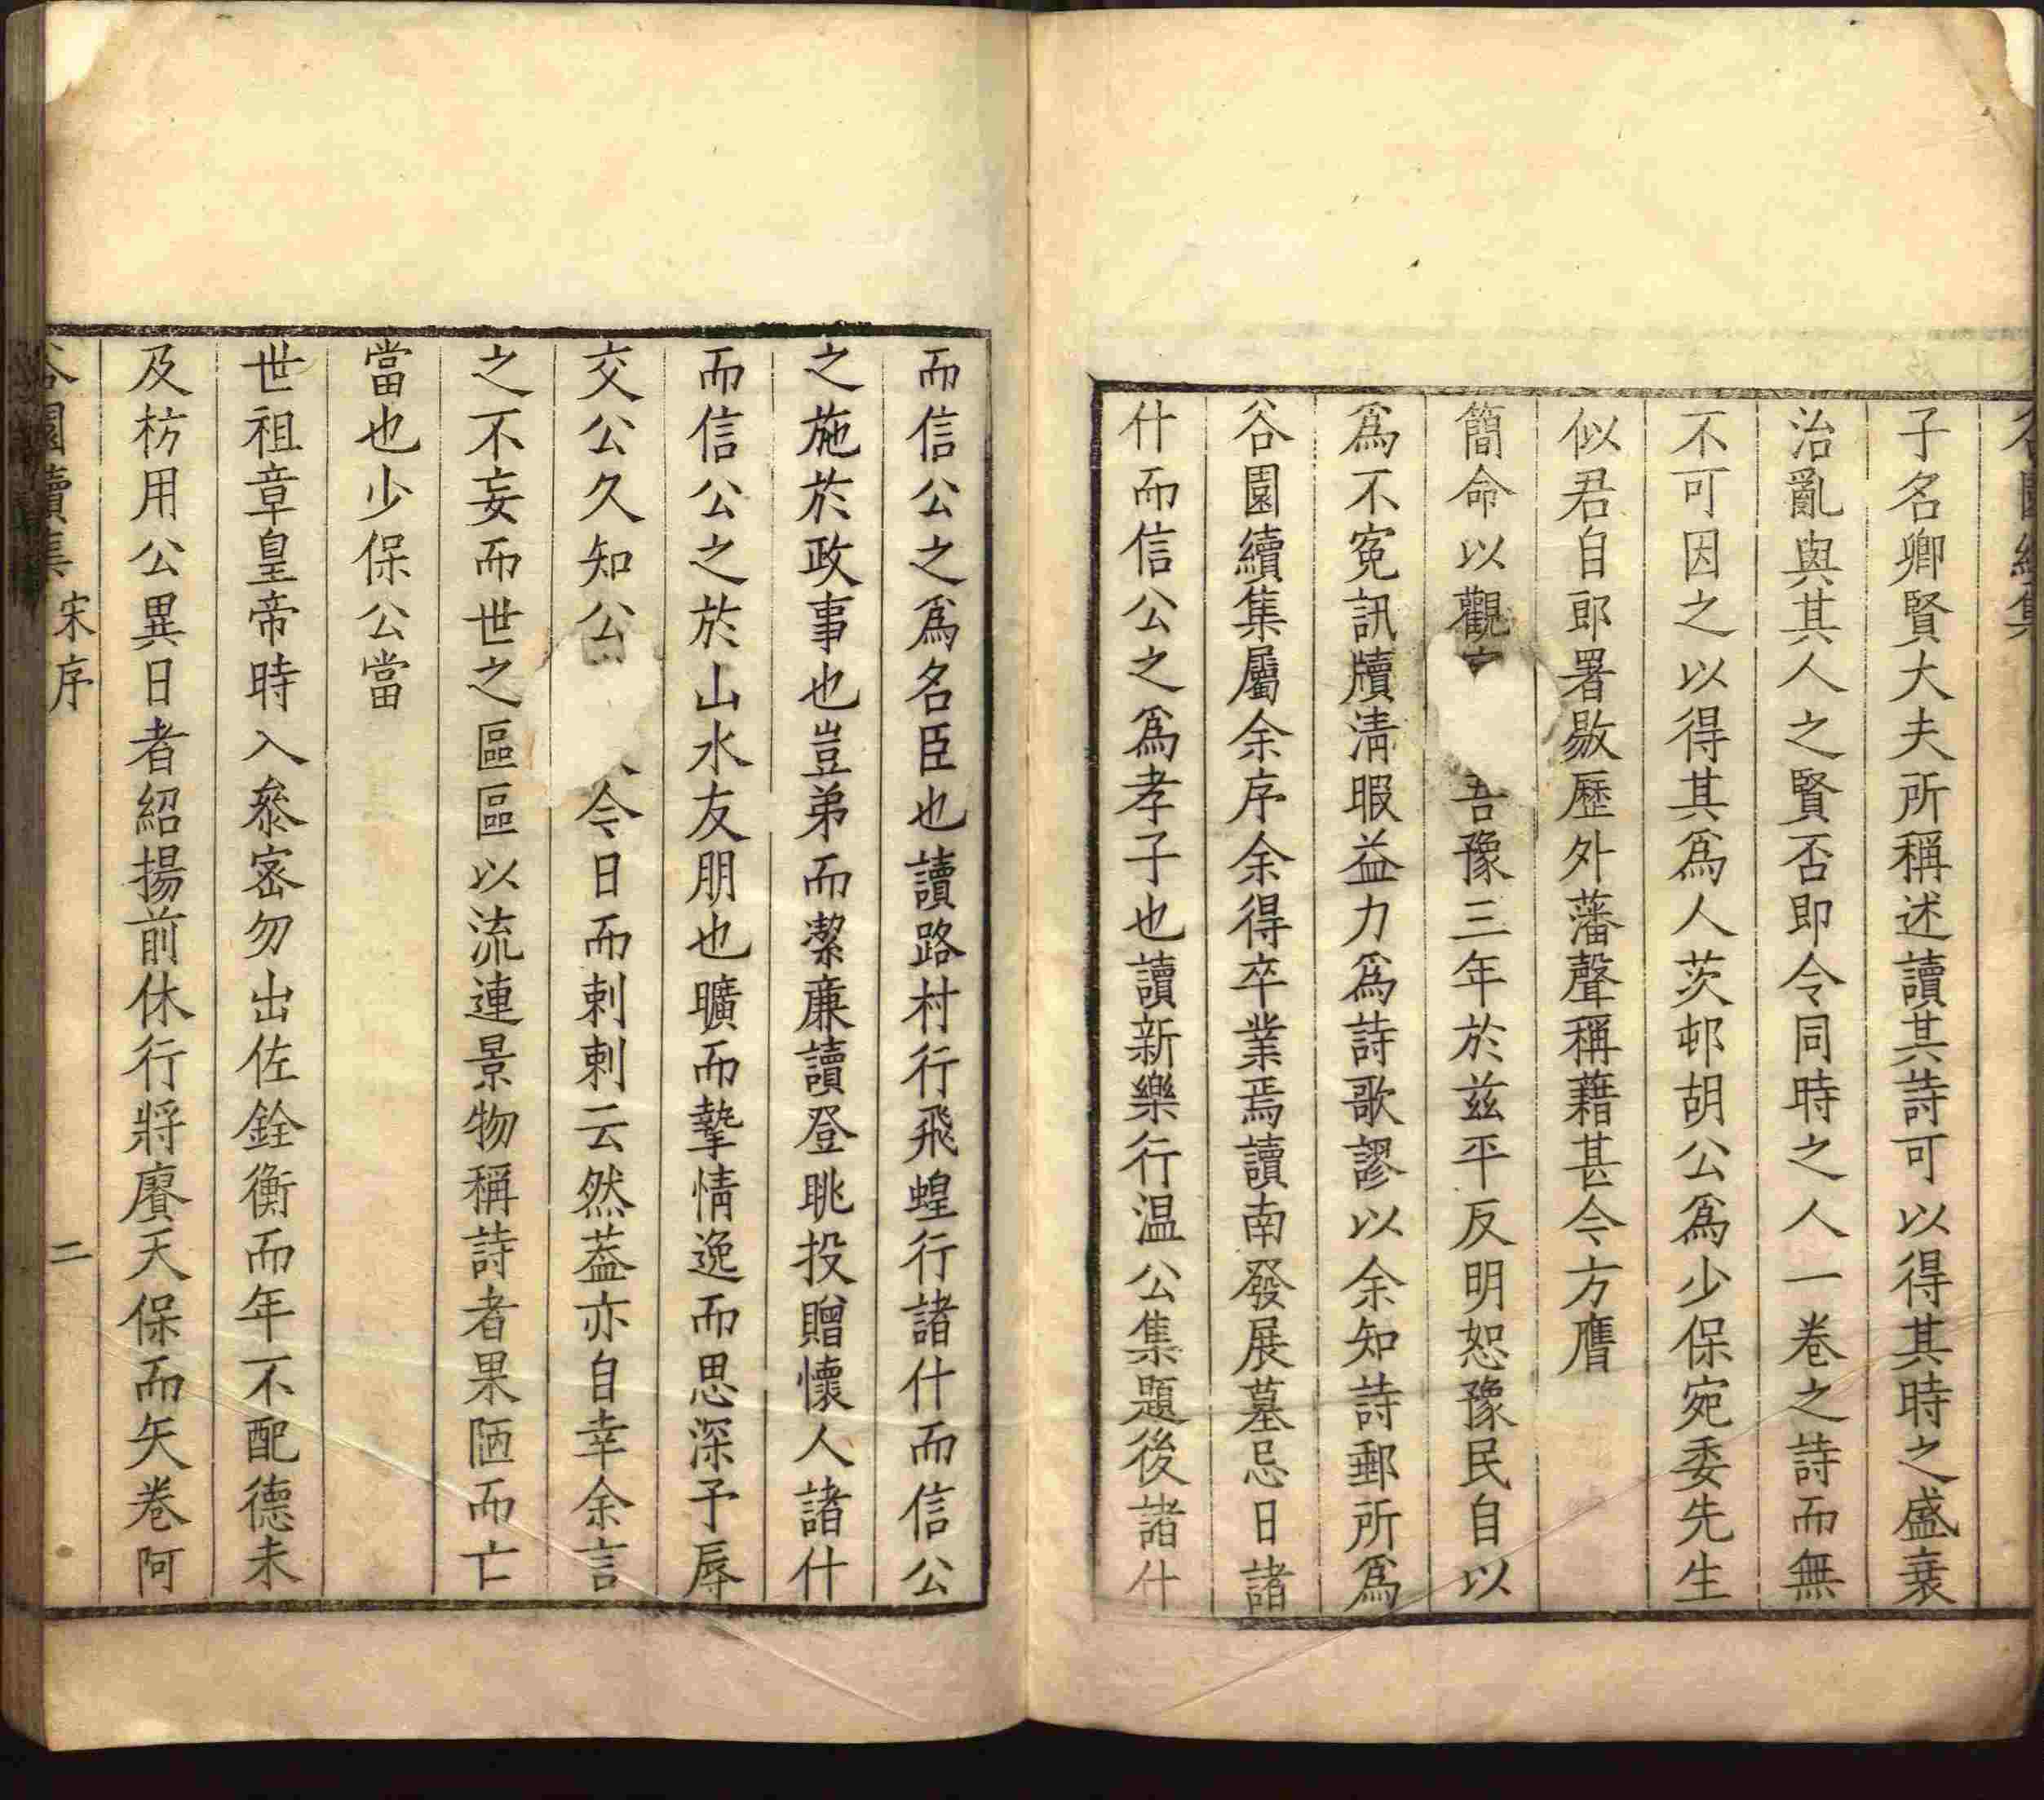 谷園續集
子名卿賢大夫所稱述讀其詩可以得其時之盛衰
治亂與其人之賢否即令同時之人一卷之詩而無
不可因之以得其爲人茨邨胡公爲少保宛委先生
似君自郎署敭歷外藩聲稱藉甚今方膺
簡命以觀吾豫三年於兹平反明恕豫民自以
爲不寃訊牘清暇益力爲詩歌謬以余知詩郵所爲
谷園續集屬余序余得卒業焉讀南發展墓忌日諸
什而信公之爲孝子也讀新樂行温公集題後諸什
而信公之爲名臣也讀路村行飛蝗行諸什而信公
之施於政事也豈弟而潔廉讀登眺投贈懷人諸什
而信公之於山水友朋也曠而摯情逸而思深予辱
交公久知公今日而刺刺云然葢亦自幸余言
之不妄而世之區區以流連景物稱詩者果陋而亡
當也少保公當
世祖章皇帝時入叅密勿出佐銓衡而年不配德未
及枋用公異日者紹揚前休行將賡天保而矢卷阿
谷園續集 宋序 二